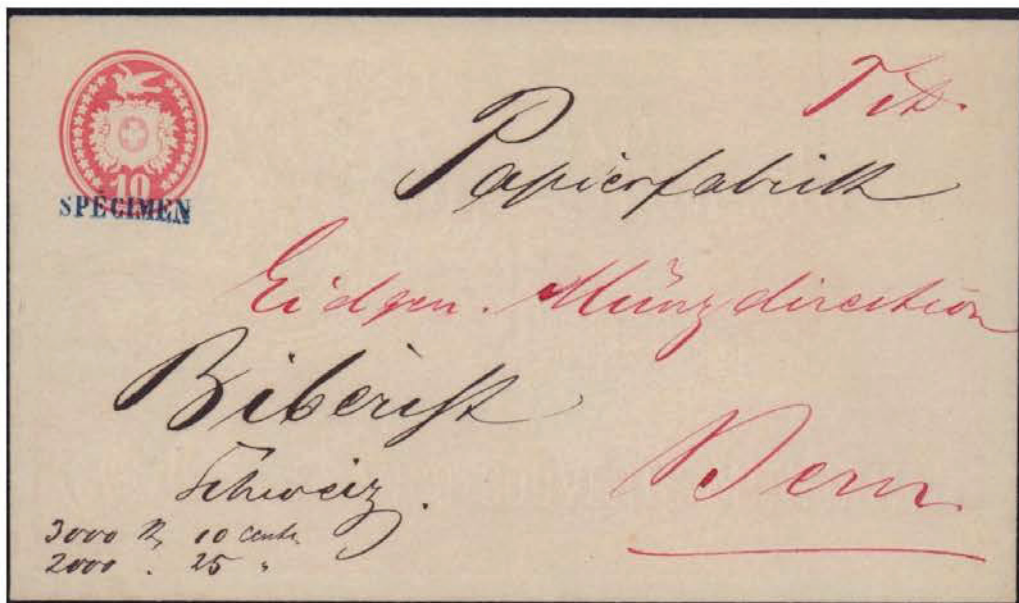 10
SPECIMEN
Tit.
Papierfabrik
Eidgen. Münzdirection
Biberist
Schweiz.
Bern
3000 R, 10 Cents.
2000 . 25 "